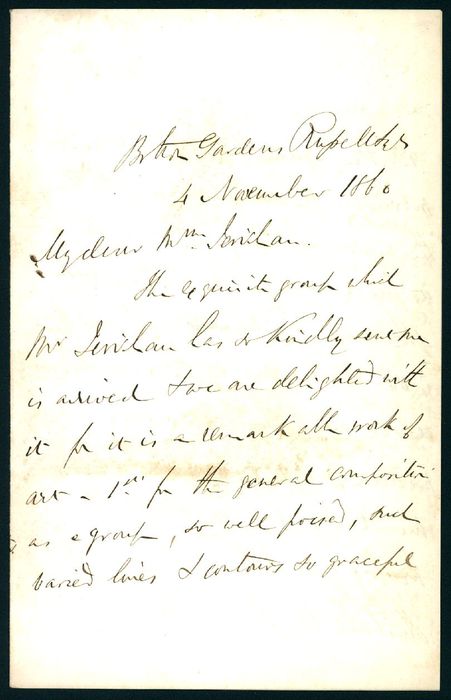 Bolton Gardens Russell Sqr
4 November 1860
My dear Mrs Jerichau.
The exquisite group which
Mr Jerichau has so kindly sent me
is arrived & we are delighted with
it for it is a remarkable work of
art – 1st for the general composition
as a group, so well poised, such
varied lines & contours so graceful